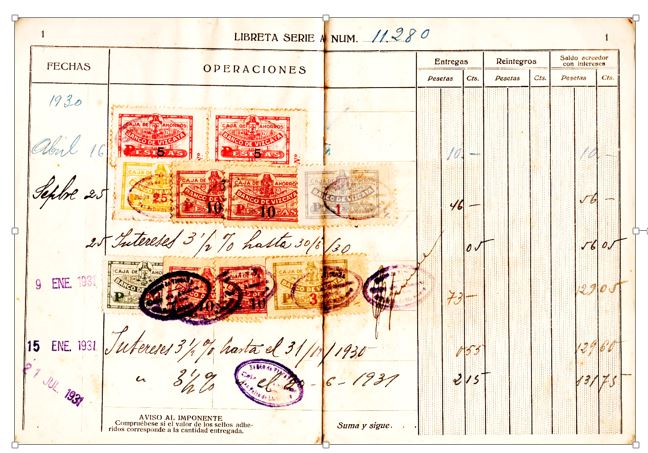 1 LIBRETA SERIE A NUM. 11.280 1
FECHAS OPERACIONES Entregas Reintegros Saldo acreedor con intereses
Pesetas Cts. Pesetas Cts. Pesetas Cts.
1930
CAJA DE AHORROS CAJA DE AHORROS
BANCO DE VIZCAYA BANCO DE VIZCAYA
PESETAS PESETAS
5 5
Abril 16 10 — 10 —
25 10 10 1
BANCO DE VIZCAYA
Sepbre 25 46 — 56 —
25 Intereses 3 1/2 % hasta 30/6/30 05 56 05
CAJA DE AHORROS
9 ENE. 1931 73 — 129 05
15 ENE. 1931 Intereses 3 1/2 % hasta el 31/12/1930 0 55 129 60
21 JUL 1931 " 3 1/2 % el 30-6-1931 2 15 131 75
AVISO AL IMPONENTE
Compruébese si el valor de los sellos adhe-
ridos corresponde a la cantidad entregada.
Suma y sigue.